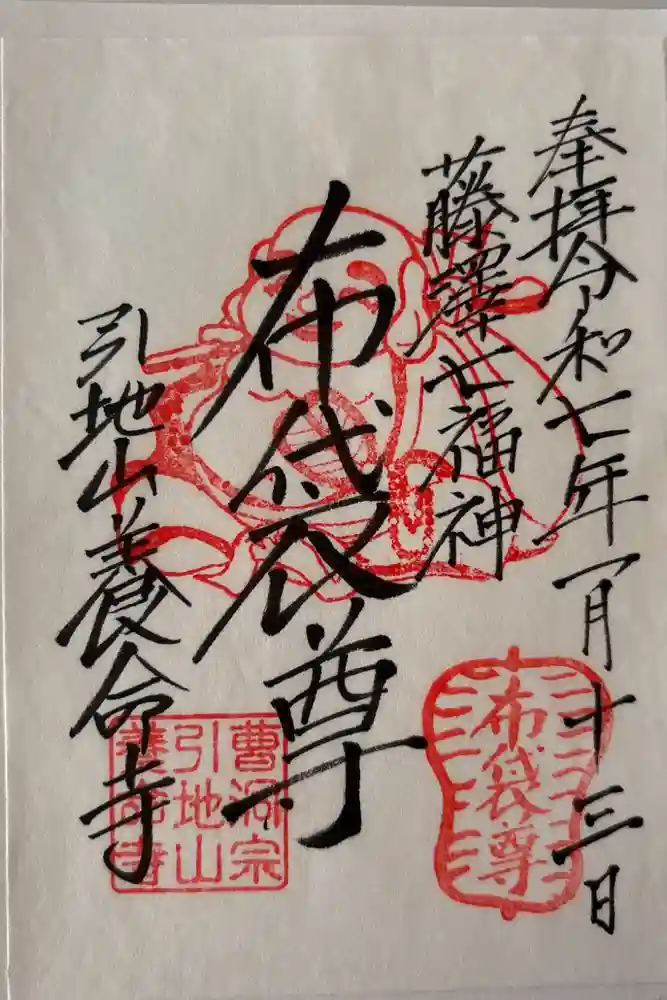 奉拝令和七年一月十三日
藤澤七福神
布袋尊
引地山養命寺
布袋尊
曹洞宗
引地山
養命寺